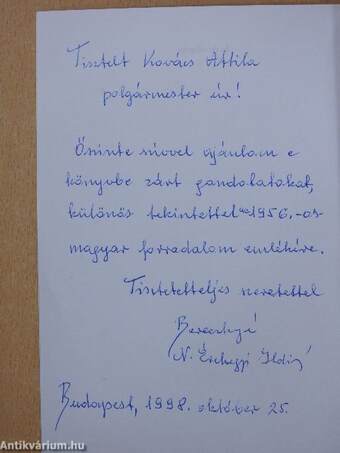 Tisztelt Kovács Attila
polgármester úr!
Őszinte szívvel ajánlom e
könyvbe zárt gondolatokat,
különös tekintettel az 1956.-os
magyar forradalom emlékére.
Tiszteletteljes szeretettel
Bereczkyé
N. Érhegyi Ildikó
Budapest, 1998. október 25.
Antikvárium.hu